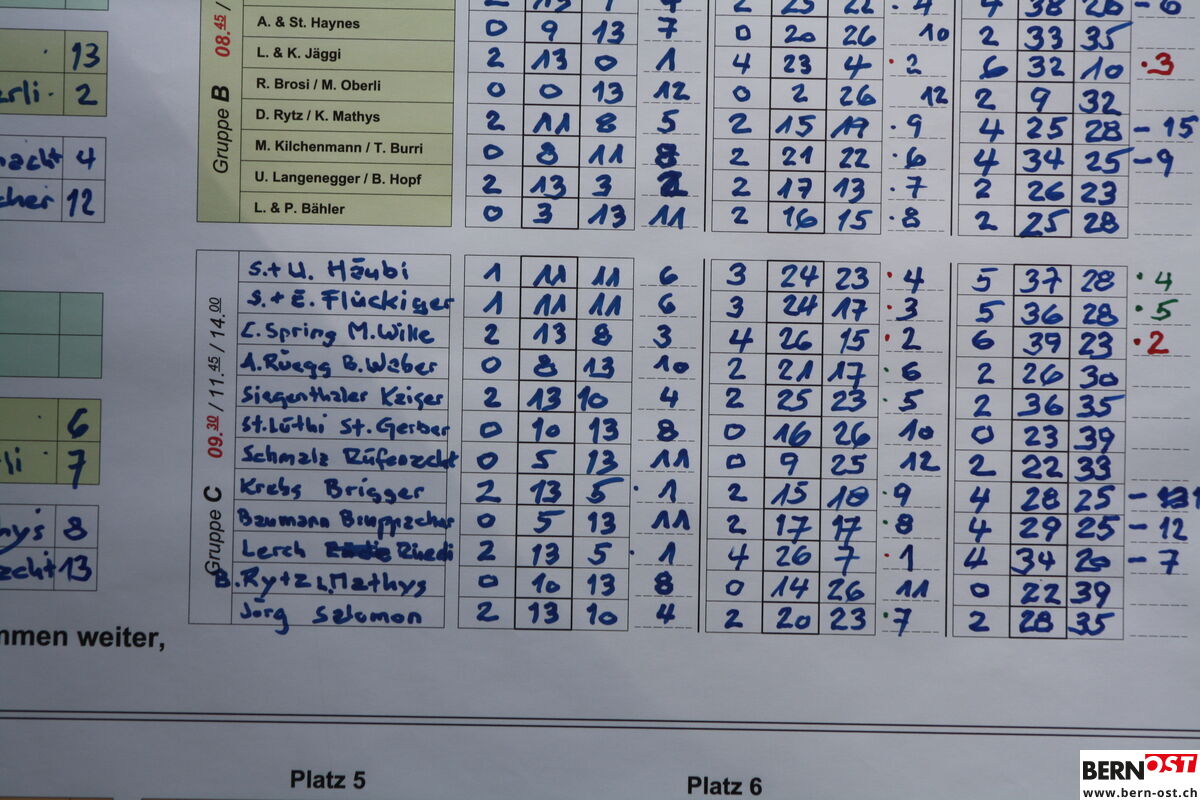 A. & St. Haynes 0 9 13 7 0 20 26 10 2 33 35
13 L. & K. Jäggi 2 13 0 1 4 23 4 · 2 6 32 10 · 3
2 R. Brosi / M. Oberli 0 0 13 12 0 2 26 12 2 9 32
D. Rytz / K. Mathys 2 11 8 5 2 15 19 · 9 4 25 28 – 15
4 M. Kilchenmann / T. Burri 0 8 11 8 2 21 22 · 6 4 34 25 – 9
12 U. Langenegger / B. Hopf 2 13 3 2 2 17 13 · 7 2 26 23
L. & P. Bähler 0 3 13 11 2 16 15 · 8 2 25 28
Gruppe B 08.45 /
S.+U. Häubi 1 11 11 6 3 24 23 · 4 5 37 28 · 4
S.+E. Flückiger 1 11 11 6 3 24 17 · 3 5 36 28 · 5
C. Spring M. Wilke 2 13 8 3 4 26 15 · 2 6 39 23 · 2
A. Rüegg B. Weber 0 8 13 10 2 21 17 · 6 2 26 30
6 Siegenthaler Keiser 2 13 10 4 2 25 23 · 5 2 36 35
7 St. Lüthi St. Gerber 0 10 13 8 0 16 26 10 0 23 39
Schmalz Rüfenacht 0 5 13 11 0 9 25 12 2 22 33
Krebs Brigger 2 13 5 · 1 2 15 18 · 9 4 28 25 –
8 Baumann 0 5 13 11 2 17 17 · 8 4 29 25 – 12
13 Lerch Riedi 2 13 5 · 1 4 26 7 · 1 4 34 20 – 7
B. Rytz L. Mathys 0 10 13 8 0 14 26 11 0 22 39
Jörg Salomon 2 13 10 4 2 20 23 · 7 2 28 35
Gruppe C 09.30 / 11.45 / 14.00
mmen weiter,
Platz 5 Platz 6
BERNOST
www.bern-ost.ch